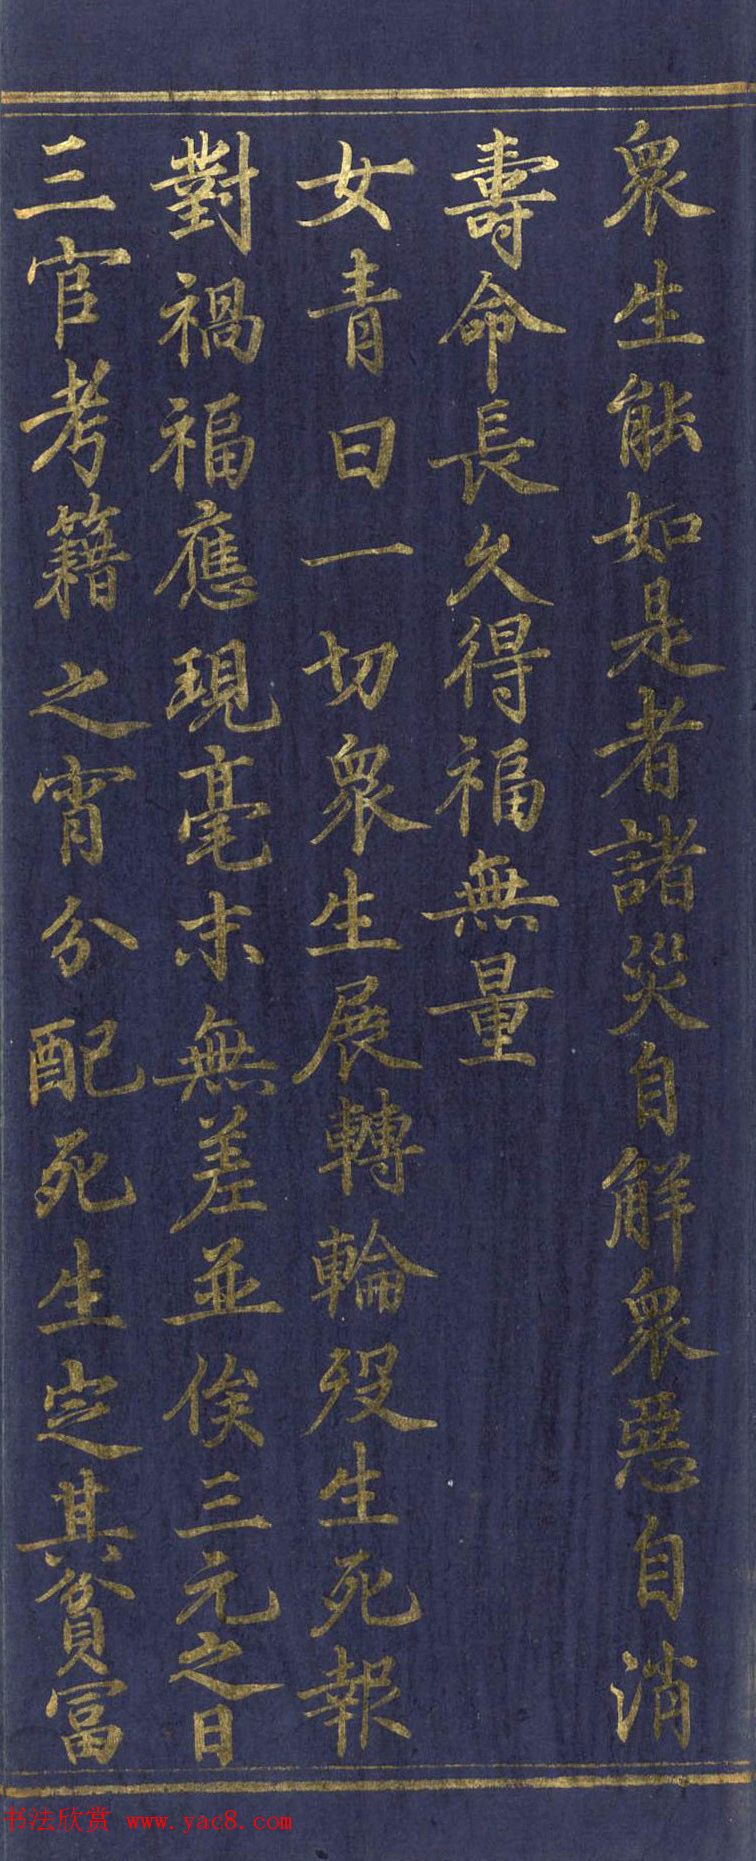 眾生能如是者諸災自解眾惡自消
壽命長久得福無量
女青曰一切眾生展轉輪役生死報
對禍福應現毫末無差並俟三元之日
三官考籍之宵分配死生定其貧富
书法欣赏 www.yac8.com